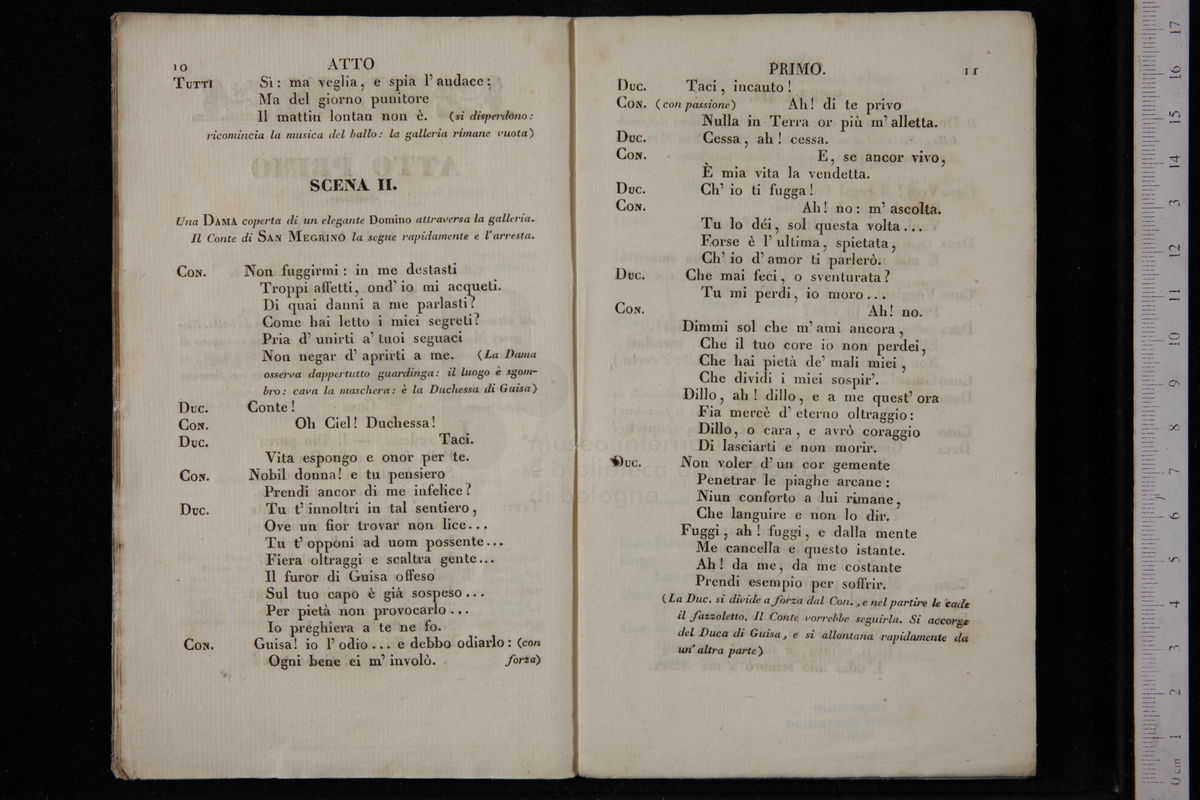 10 ATTO
TUTTI Sì: ma veglia, e spia l' audace;
Ma del giorno punitore
Il mattin lontan non è. (si disperdòno:
ricomincia la musica del ballo: la galleria rimane vuota)
SCENA II.
Una DAMA coperta di un elegante Domino attraversa la galleria.
Il Conte di SAN MEGRINO la segue rapidamente e l'arresta.
CON. Non fuggirmi: in me destasti
Troppi affetti, ond' io mi acqueti.
Di quai danni a me parlasti?
Come hai letto i miei segreti?
Pria d' unirti a' tuoi seguaci
Non negar d' aprirti a me. (La Dama
osserva dappertutto guardinga: il luogo è sgom-
bro: cava la maschera: è la Duchessa di Guisa)
DUC. Conte!
CON. Oh Ciel! Duchessa!
DUC. Taci.
Vita espongo e onor per te.
CON. Nobil donna! e tu pensiero
Prendi ancor di me infelice?
DUC. Tu t' innoltri in tal sentiero,
Ove un fior trovar non lice...
Tu t' opponi ad uom possente...
Fiera oltraggi e scaltra gente...
Il furor di Guisa offeso
Sul tuo capo è già sospeso...
Per pietà non provocarlo...
Io preghiera a te ne fo.
CON. Guisa! io l' odio... e debbo odiarlo: (con
Ogni bene ei m' involò. forza)
PRIMO. 11
DUC. Taci, incauto!
CON. (con passione) Ah! di te privo
Nulla in Terra or più m' alletta.
DUC. Cessa, ah! cessa.
CON. E, se ancor vivo,
È mia vita la vendetta.
DUC. Ch' io ti fugga!
CON. Ah! no: m' ascolta.
Tu lo déi, sol questa volta...
Forse è l' ultima, spietata,
Ch' io d' amor ti parlerò.
DUC. Che mai feci, o sventurata?
Tu mi perdi, io moro...
CON. Ah! no.
Dimmi sol che m' ami ancora,
Che il tuo core io non perdei,
Che hai pietà de' mali miei,
Che dividi i miei sospir'.
Dillo, ah! dillo, e a me quest' ora
Fia mercè d' eterno oltraggio:
Dillo, o cara, e avrò coraggio
Di lasciarti e non morir.
DUC. Non voler d' un cor gemente
Penetrar le piaghe arcane:
Niun conforto a lui rimane,
Che languire e non lo dir.
Fuggi, ah! fuggi, e dalla mente
Me cancella e questo istante.
Ah! da me, da me costante
Prendi esempio per soffrir.
(La Duc. si divide a forza dal Con., e nel partire le cade
il fazzoletto. Il Conte vorrebbe seguirla. Si accorge
del Duca di Guisa, e si allontana rapidamente da
un' altra parte)
museo interna
e biblioteca
di bologna
0 cm 1 2 3 4 5 6 7 8 9 10 11 12 13 14 15 16 17